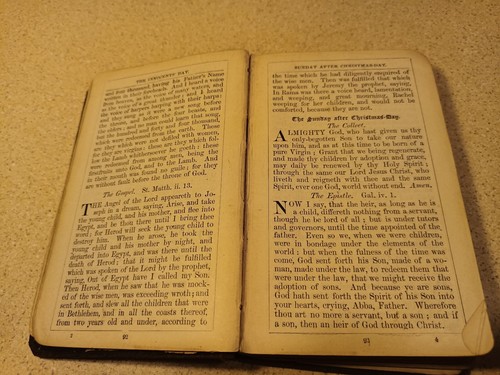 THE INNOCENTS' DAY.
and four thousand, having his Father's Name
written in their foreheads. And I heard a voice
from heaven, as the voice of many waters, and
as the voice of a great thunder; and I heard
the voice of harpers harping with their harps:
and they sung as it were a new song before
the throne, and before the four beasts, and
the elders; and no man could learn that song,
but the hundred and forty and four thousand,
which were redeemed from the earth. These
are they which were not defiled with women;
for they are virgins: these are they which fol-
low the Lamb whithersoever he goeth: these
were redeemed from among men, being the
firstfruits unto God, and to the Lamb. And
in their mouth was found no guile; for they
are without fault before the throne of God.
The Gospel. St. Matth. ii. 13.
THE Angel of the Lord appeareth to Jo-
seph in a dream, saying, Arise, and take
the young child, and his mother, and flee into
Egypt, and be thou there until I bring thee
word; for Herod will seek the young child to
destroy him. When he arose, he took the
young child and his mother by night, and
departed into Egypt, and was there until the
death of Herod; that it might be fulfilled
which was spoken of the Lord by the prophet,
saying, Out of Egypt have I called my Son.
Then Herod, when he saw that he was mock-
ed of the wise men, was exceeding wroth; and
sent forth, and slew all the children that were
in Bethlehem, and in all the coasts thereof,
from two years old and under, according to
92
SUNDAY AFTER CHRISTMAS-DAY.
the time which he had diligently enquired of
the wise men. Then was fulfilled that which
was spoken by Jeremy the prophet, saying,
In Rama was there a voice heard, lamentation,
and weeping, and great mourning, Rachel
weeping for her children, and would not be
comforted, because they are not.
The Sunday after Christmas-Day.
The Collect.
ALMIGHTY God, who hast given us thy
only-begotten Son to take our nature
upon him, and as at this time to be born of a
pure Virgin; Grant that we being regenerate,
and made thy children by adoption and grace,
may daily be renewed by thy Holy Spirit;
through the same our Lord Jesus Christ, who
liveth and reigneth with thee and the same
Spirit, ever one God, world without end. Amen.
The Epistle. Gal. iv. 1.
NOW I say, that the heir, as long as he is
a child, differeth nothing from a servant,
though he be lord of all; but is under tutors
and governors, until the time appointed of the
father. Even so we, when we were children,
were in bondage under the elements of the
world: but when the fulness of the time was
come, God sent forth his Son, made of a wo-
man, made under the law, to redeem them that
were under the law, that we might receive the
adoption of sons. And because ye are sons,
God hath sent forth the Spirit of his Son into
your hearts, crying, Abba, Father. Wherefore
thou art no more a servant, but a son; and if
a son, then an heir of God through Christ.
93